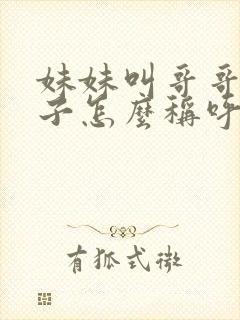 妹妹叫哥哥
子怎麼稱呼
有狐式微